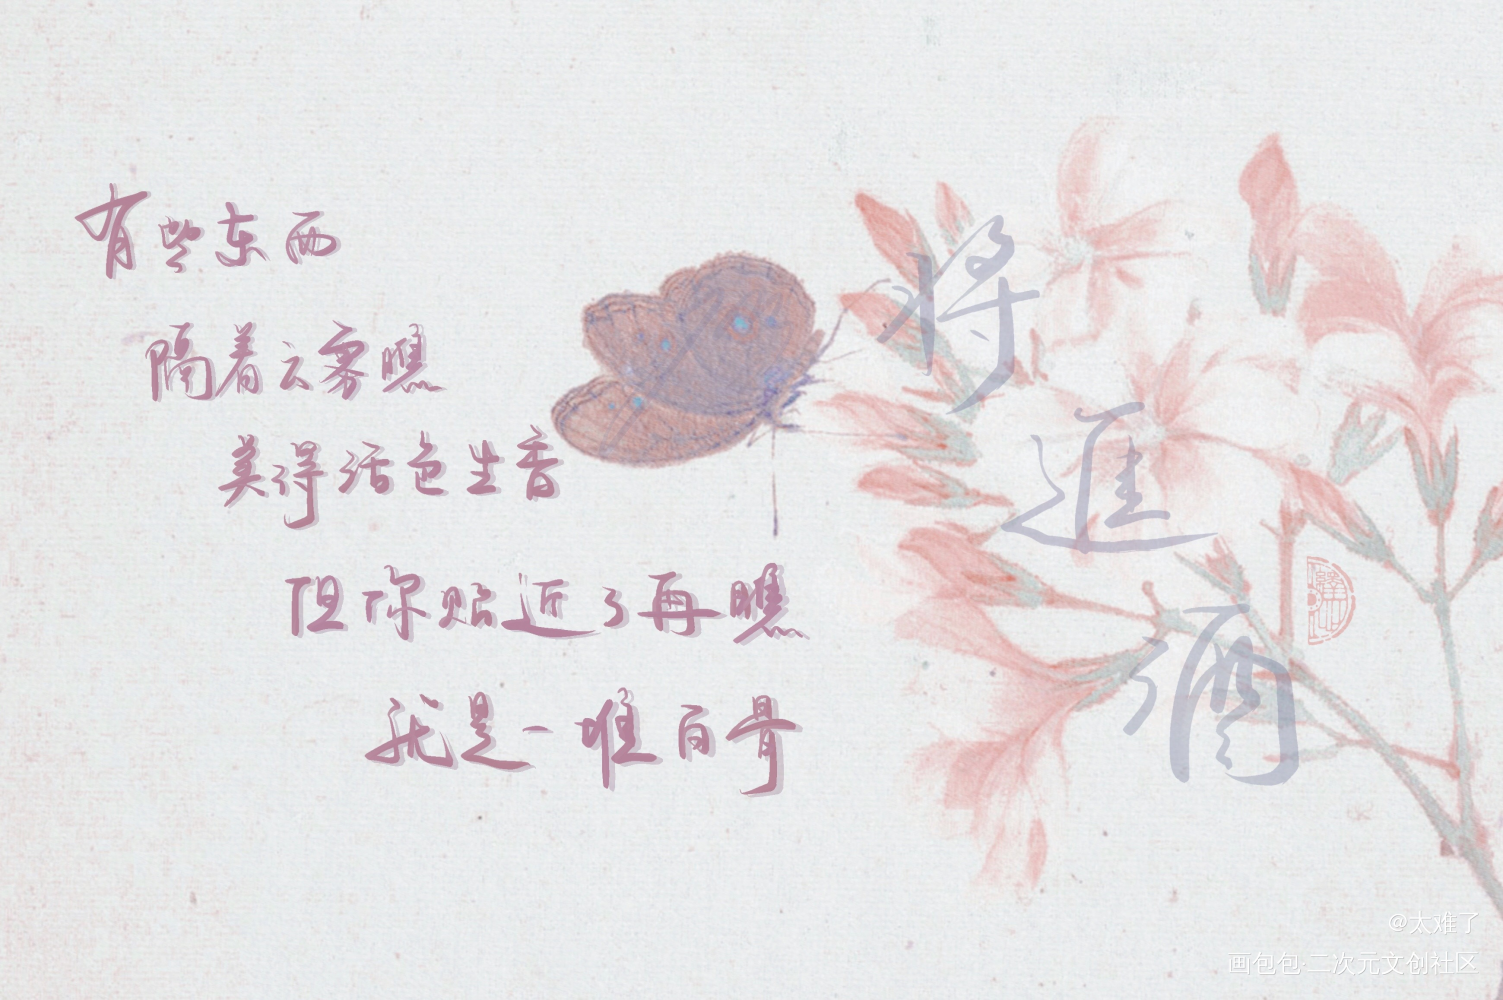 有些东西
隔着云雾瞧
美得活色生香
但你贴近了再瞧
就是一堆白骨
将
進
酒
@太难了
画包包·二次元文创社区